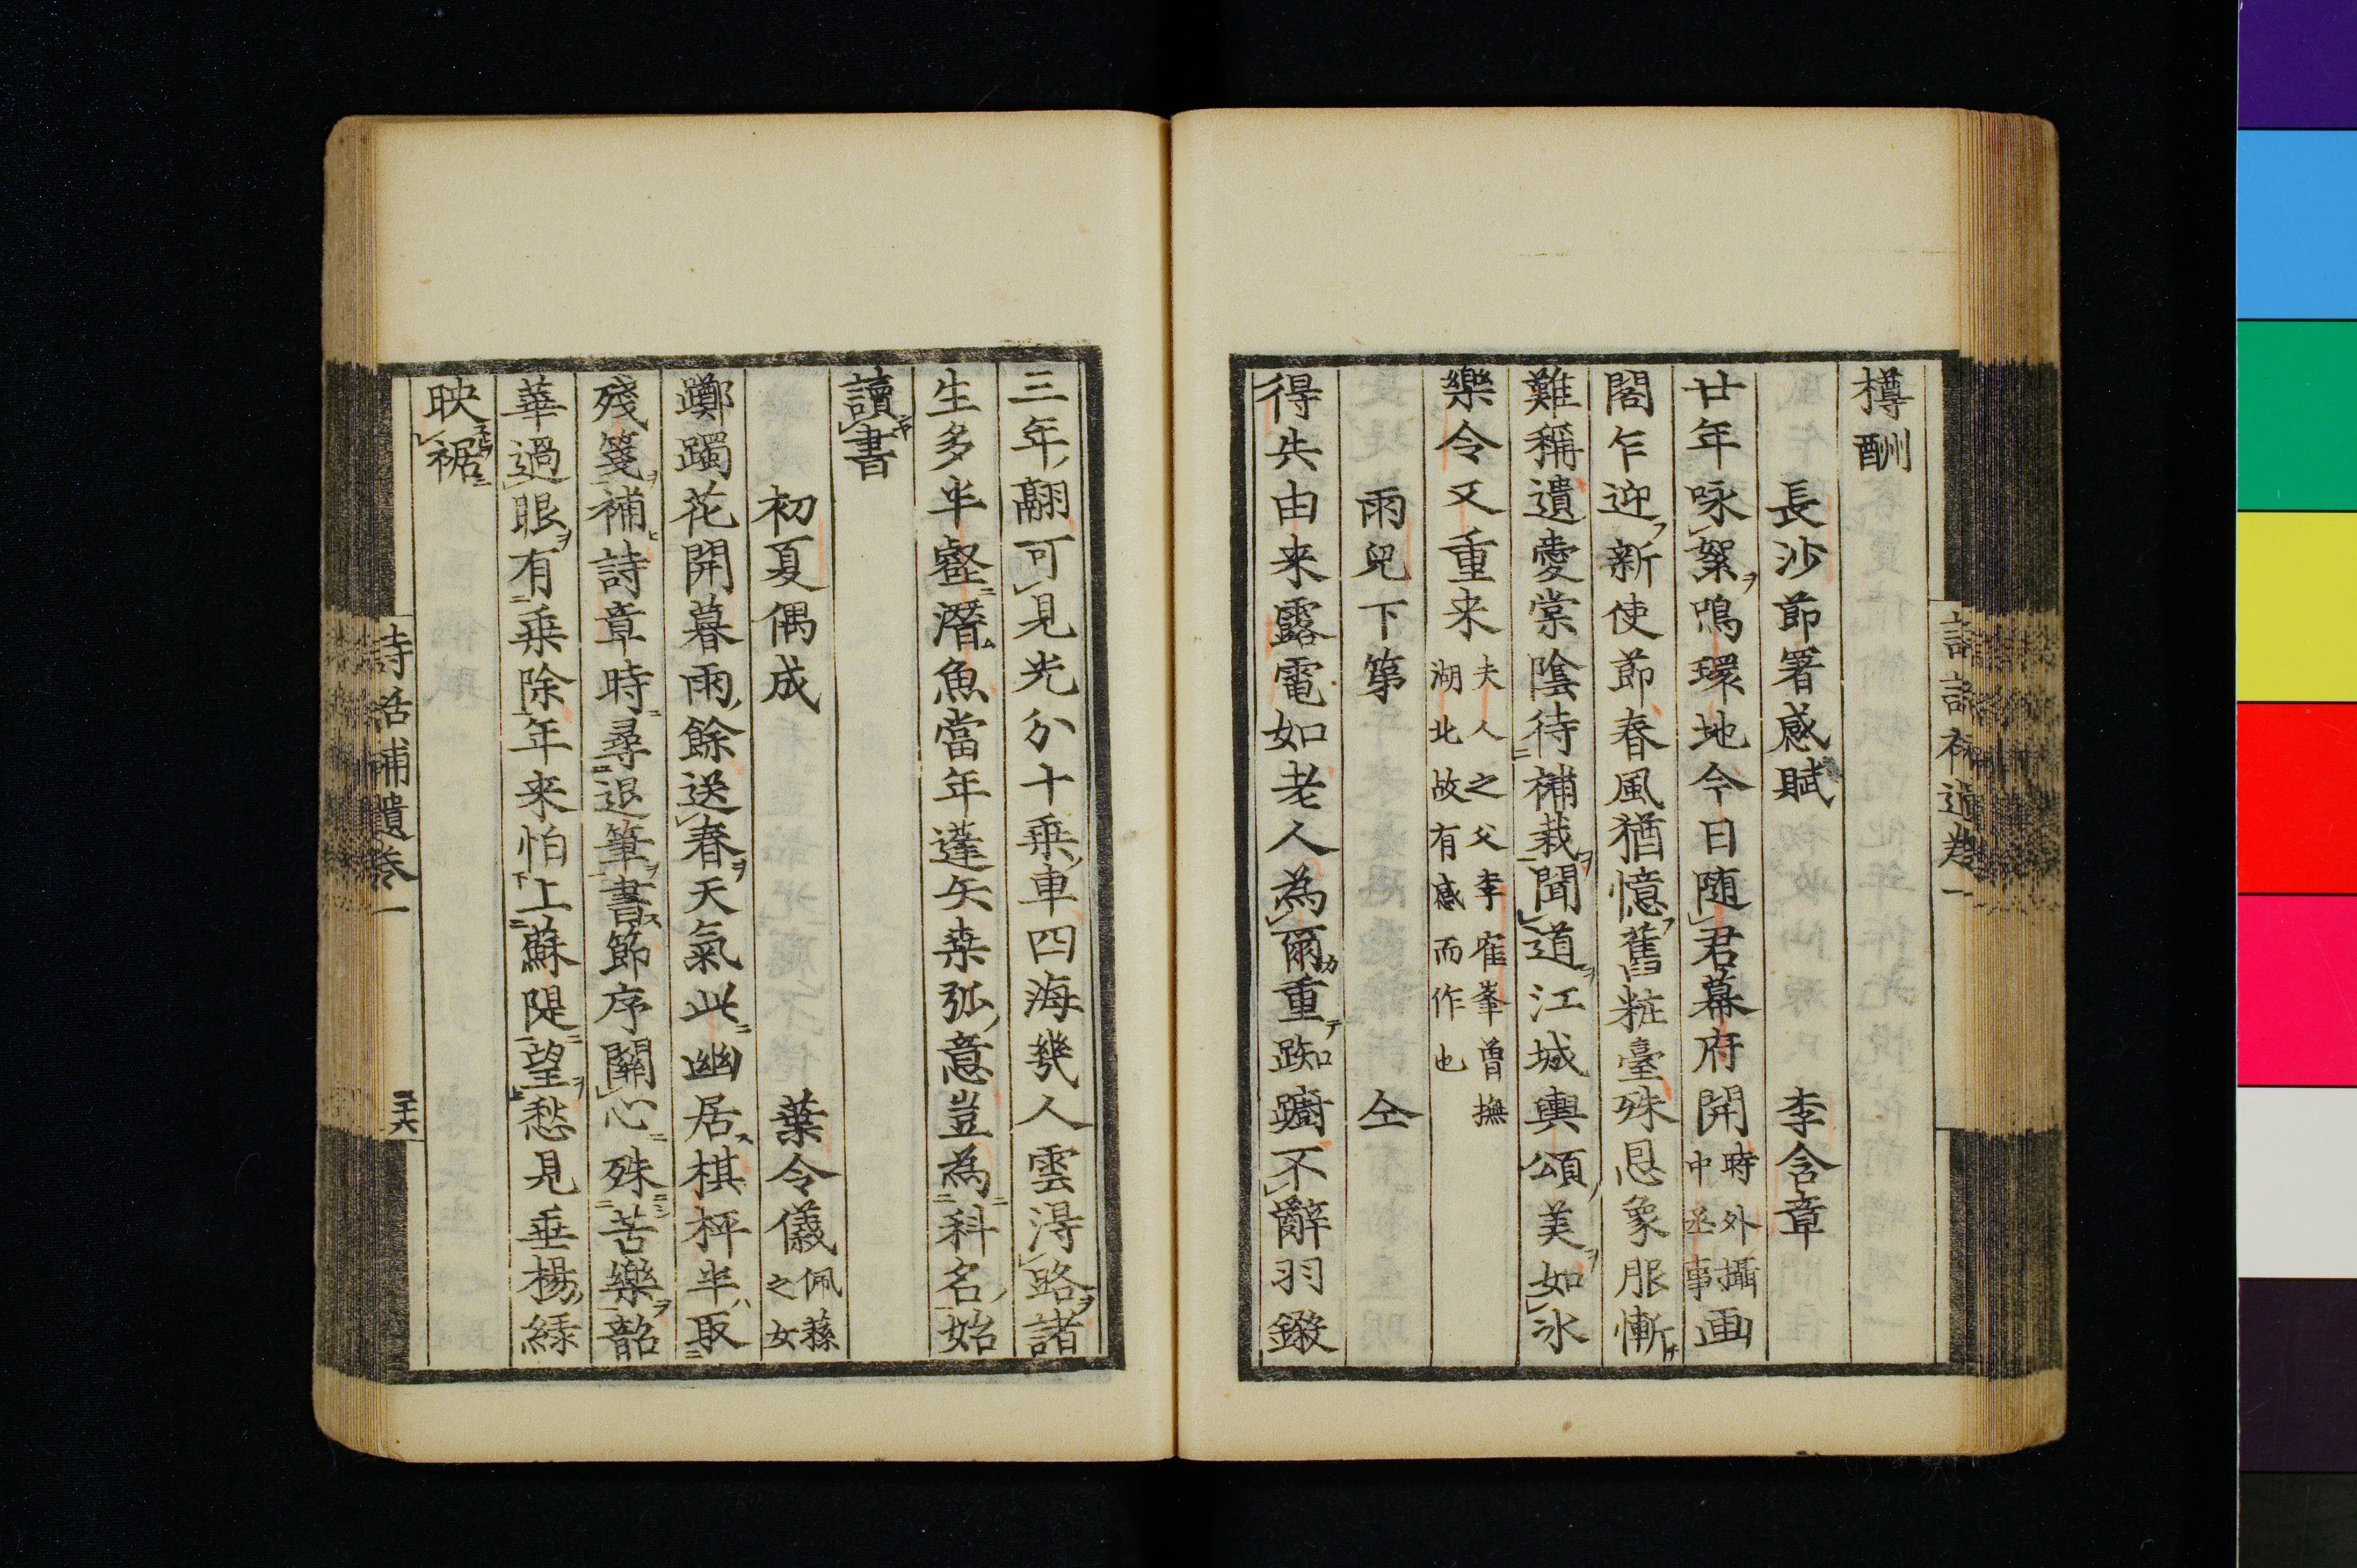 樽酬
長沙節署感賦　李含章
廿年咏絮鳴環地今日随君幕府開時外攝中丞事画
閣乍迎新使節春風猶憶舊粧臺殊恩象服慚
難稱遺愛棠陰待補栽聞道江城輿頌美如氷
樂令又重来夫人之父李寉峯曽撫湖北故有感而作也
雨兒下第　仝
得失由来露電如老人為爾重踟躕不辭羽鎩
三年翮可見光分十乗車四海幾人雲得路諸
生多半壑潛魚當年蓬矢桒弧意豈為科名始
讀書
初夏偶成　葉令儀佩蓀之女
躑躅花開暮雨餘送春天氣此幽居棋枰半取
殘箋補詩章時尋退筆書節序關心殊苦樂韶
華過眼有乗除年来怕上蘇隄望愁見垂楊緑
映裾
詩話補遺卷一
三十六